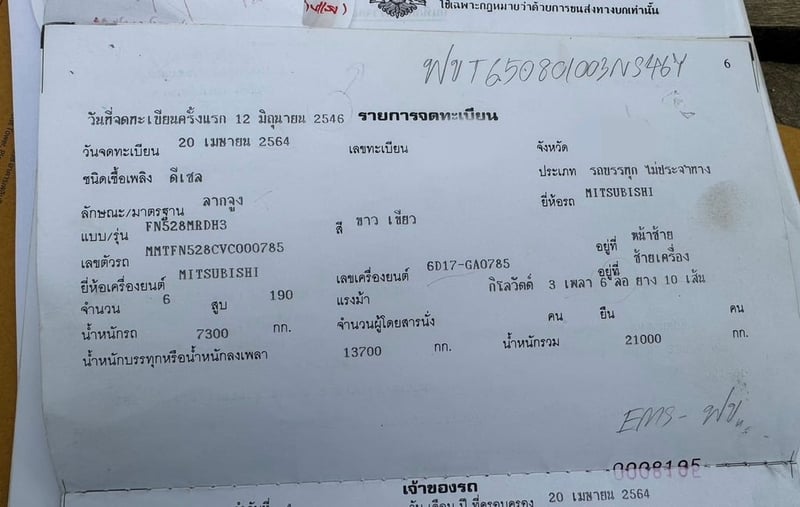 ใช้เฉพาะกฎหมายว่าด้วยการขนส่งทางบกเท่านั้น
ฟขT650801003NS464
6
วันที่จดทะเบียนครั้งแรก 12 มิถุนายน 2546 รายการจดทะเบียน
วันจดทะเบียน 20 เมษายน 2564 เลขทะเบียน จังหวัด
ชนิดเชื้อเพลิง ดีเซล ประเภท รถบรรทุก ไม่ประจำทาง
ลักษณะ/มาตรฐาน ลากจูง ยี่ห้อรถ MITSUBISHI
แบบ/รุ่น FN528MRDH3 สี ขาว เขียว
เลขตัวรถ MMTFN528CVC000785 อยู่ที่ หน้าซ้าย
ยี่ห้อเครื่องยนต์ MITSUBISHI เลขเครื่องยนต์ 6D17-GA0785 อยู่ที่ ซ้ายเครื่อง
จำนวน 6 สูบ 190 แรงม้า กิโลวัตต์ 3 เพลา 6 ล้อ ยาง 10 เส้น
น้ำหนักรถ 7300 กก. จำนวนผู้โดยสารนั่ง คน ยืน คน
น้ำหนักบรรทุกหรือน้ำหนักลงเพลา 13700 กก. น้ำหนักรวม 21000 กก.
EMS- ฟข
0008195
เจ้าของรถ
วัน เดือน ปี ที่ครอบครอง 20 เมษายน 2564